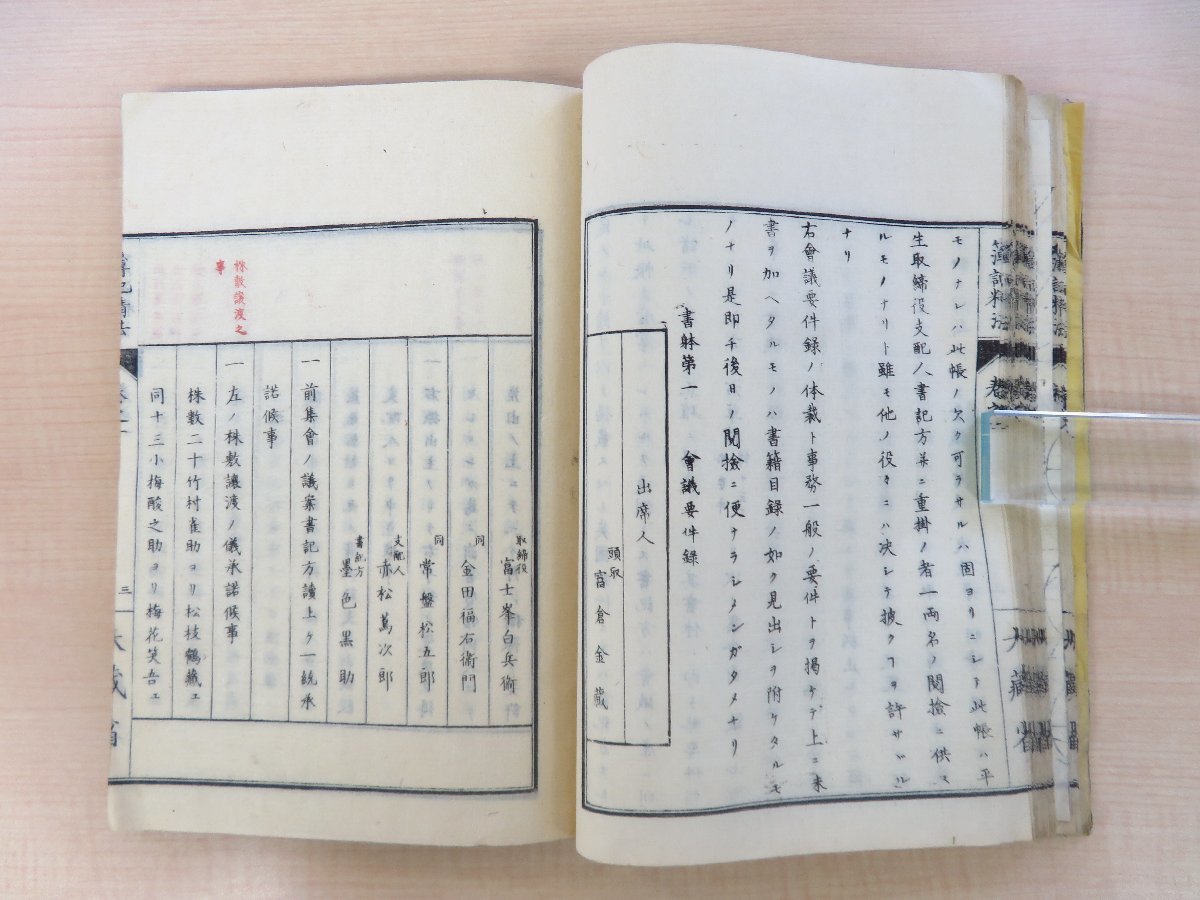 モノナレハ此帳ノ欠ク可ラサルハ固ヨリニシテ此帳ハ平
生取締役支配人書記方并ニ重掛ノ者一両名ノ閲撿ニ供スルモノナリト雖モ他ノ役々ニハ决シテ披クヿヲ許サヾル
ナリ
右會議要件録ノ体裁ト事務一般ノ要件トヲ掲ケテ上ニ朱
書ヲ加ヘタルモノハ書籍目録ノ如ク見出シヲ附ケタルモ
ノナリ是即チ後日ノ閲撿ニ便ナラシメンガタメナリ
書躰第一 會議要件録
出席人
頭取
富倉金藏
取締役
富士峯白兵衛
同
金田福右衛門
同
常盤松五郎
支配人
赤松萬次郎
書記方
墨色天黒助
一 前集會ノ議案書記方讀上ケ一統承
諾候事
株數讓渡之
事
一 左ノ株數讓渡ノ儀承諾候事
株数二十竹村雀助ヨリ松枝鶴藏エ
同十三小梅酸之助ヨリ梅花笑吾エ
簿記精法
三
大藏省
簿記精法
大藏省